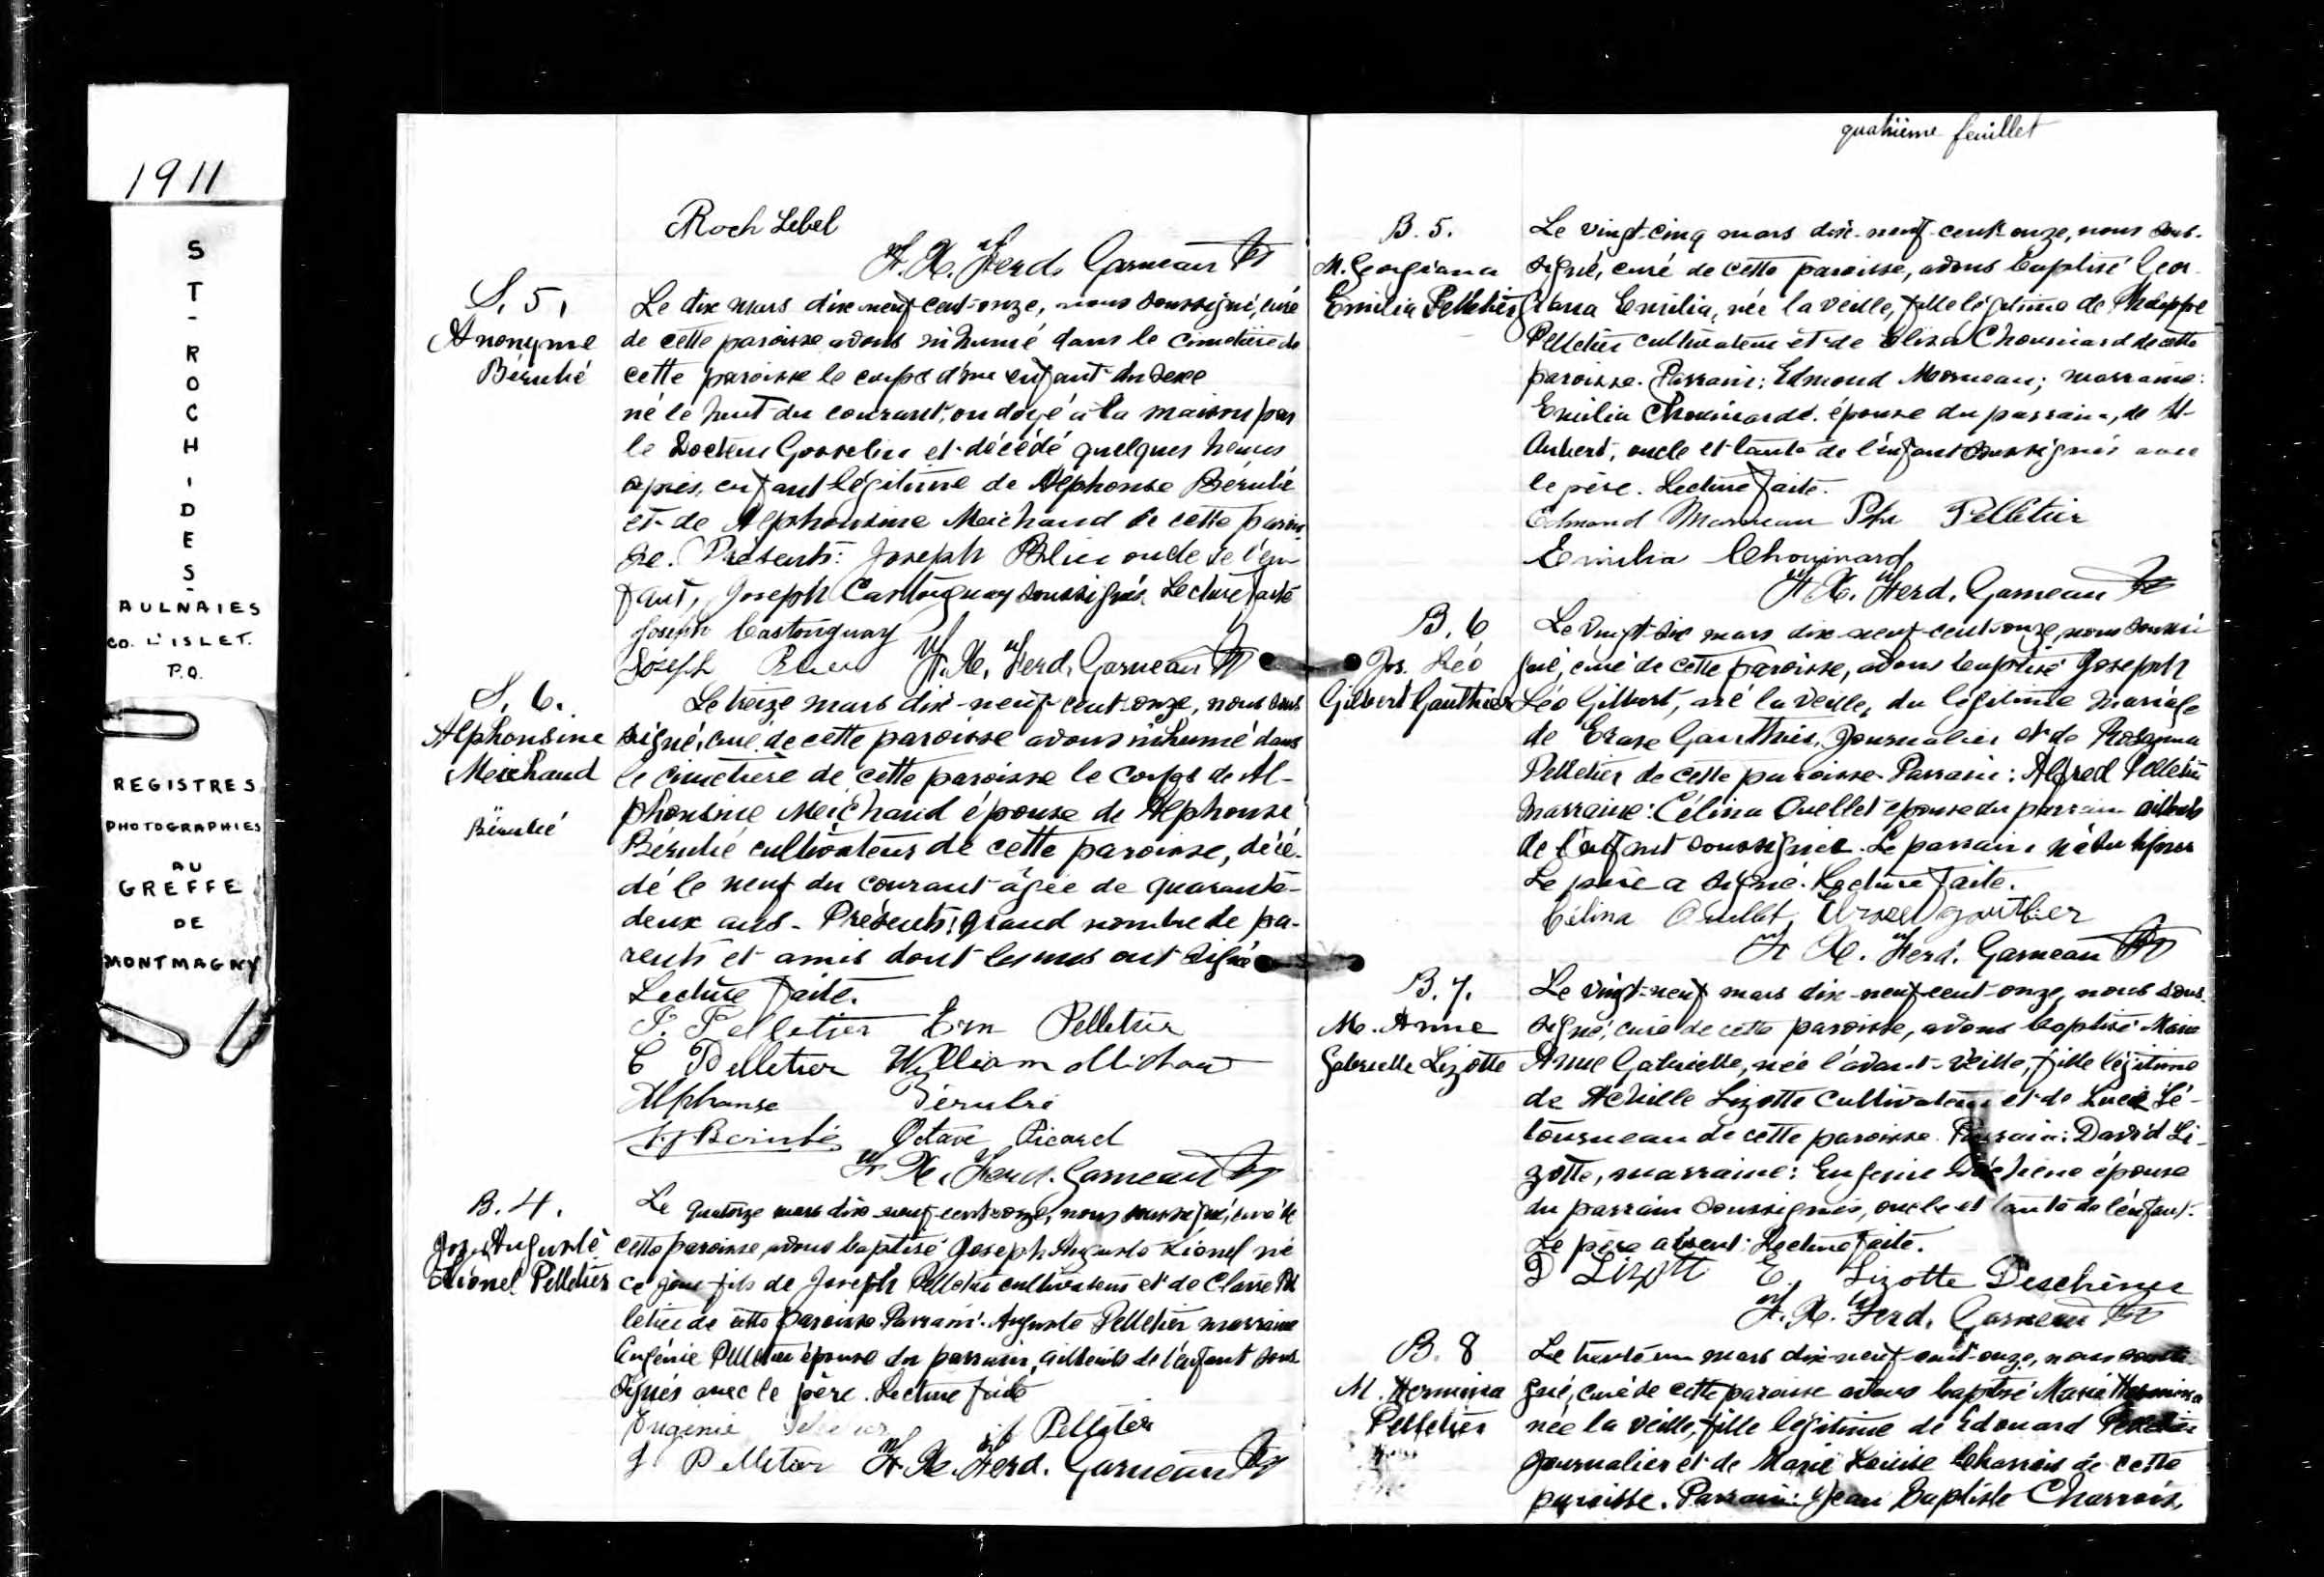 1911
ST-ROCH-DES-
AULNAIES
CO. L'ISLET.
P.Q.
REGISTRES
PHOTOGRAPHIES
AU
GREFFE
DE
MONTMAGNY
Roch Lebel
F. X. Ferd. Garneau Ptre
S. 5.
Anonyme
Bérubé
Le dix mars dix-neuf-cent-onze, nous soussigné, curé
de cette paroisse avons inhumé dans le cimetière de
cette paroisse le corps d'un enfant du sexe
né le huit du courant, ondoyé à la maison par
le Docteur Gosselin et décédé quelques heures
après, enfant légitime de Alphonse Bérubé
et de Alphonsine Meichaud de cette parois
se. Présents: Joseph oncle de l'en
fant, Joseph Castonguay soussignés. Lecture faite
Joseph Castonguay
Joseph F. X. Ferd. Garneau Ptre
S. 6.
Alphonsine
Meichaud
Bérubé
Le treize mars dix-neuf-cent-onze, nous sous
signé, curé de cette paroisse avons inhumé dans
le cimetière de cette paroisse le corps de Al-
phonsine Meichaud épouse de Alphonse
Bérubé cultivateur de cette paroisse, décé-
dé le neuf du courant âgée de quarante-
deux ans. Présents: grand nombre de pa-
rents et amis dont les uns ont signé
Lecture faite.
P. Pelletier Ern Pelletier
C Pelletier William Michaud
Alphonse Bérubé
J. Bérubé Octave Picard
F. X. Ferd. Garneau Ptre
B. 4.
Jos. Auguste
Lionel Pelletier
Le quatorze mars dix-neuf-cent-onze, nous soussigné, curé de
cette paroisse, avons baptisé Joseph Auguste Lionel né
ce jour fils de Joseph Pelletier cultivateur et de Claire Pel
letier de cette paroisse. Parrain: Auguste Pelletier marraine
Eugénie Pelletier épouse du parrain, aïeuls de l'enfant sous
signés avec le père. Lecture faite
Eugenie Pelletier Pelletier
J Pelletier F. X. Ferd. Garneau Ptre
quatrième feuillet
B. 5.
M. Georgiana
Emilia Pelletier
Le vingt-cinq mars dix-neuf-cent-onze, nous sous-
signé, curé de cette paroisse, avons baptisé Geor-
giana Emilia, née la veille, fille légitime de Philippe
Pelletier cultivateur et de Elisa Chouinard de cette
paroisse. Parrain: Edmond Morneau; marraine:
Emilia Chouinard épouse du parrain, de St-
Aubert, oncle et tante de l'enfant soussignés avec
le père. Lecture faite.
Edmond Morneau Phe Pelletier
Emilia Chouinard
F. X. Ferd. Garneau Ptre
B. 6
Jos. Léo
Gilbert Gauthier
Le vingt-six mars dix-neuf-cent-onze, nous soussi
gné, curé de cette paroisse, avons baptisé Joseph
Léo Gilbert, né la veille, du légitime mariage
de Gauthier, Journalier et de Rosanna
Pelletier de cette paroisse. Parrain: Alfred Pelletier
marraine: Célina Ouellet épouse du parrain aïeuls
de l'enfant soussignée. Le parrain n'a su signer
Le père a signé. Lecture faite.
Célina Ouellet, gauthier
F. X. Ferd. Garneau Ptre
B. 7.
M. Anne
Gabrielle Lizotte
Le vingt-neuf mars dix-neuf-cent-onze, nous sous-
signé, curé de cette paroisse, avons baptisé Marie
Anne Gabrielle, née l'avant-veille, fille légitime
de Achille Lizotte cultivateur et de Lucie Lé-
tourneau de cette paroisse. Parrain: David Li-
zotte, marraine: Eugénie Déchène épouse
du parrain soussignés, oncle et tante de l'enfant.
Le père absent. Lecture faite.
D Lizotte E. Lizotte Deschênes
F. X. Ferd. Garneau Ptre
B. 8
M. Hermina
Pelletier
Le trente-un mars dix-neuf-cent-onze, nous soussi
gné, curé de cette paroisse avons baptisé Marie Hermina
née la veille, fille légitime de Edouard Pelletier
Journalier et de Marie Louise Charrois de cette
paroisse. Parrain: Jean Baptiste Charrois,